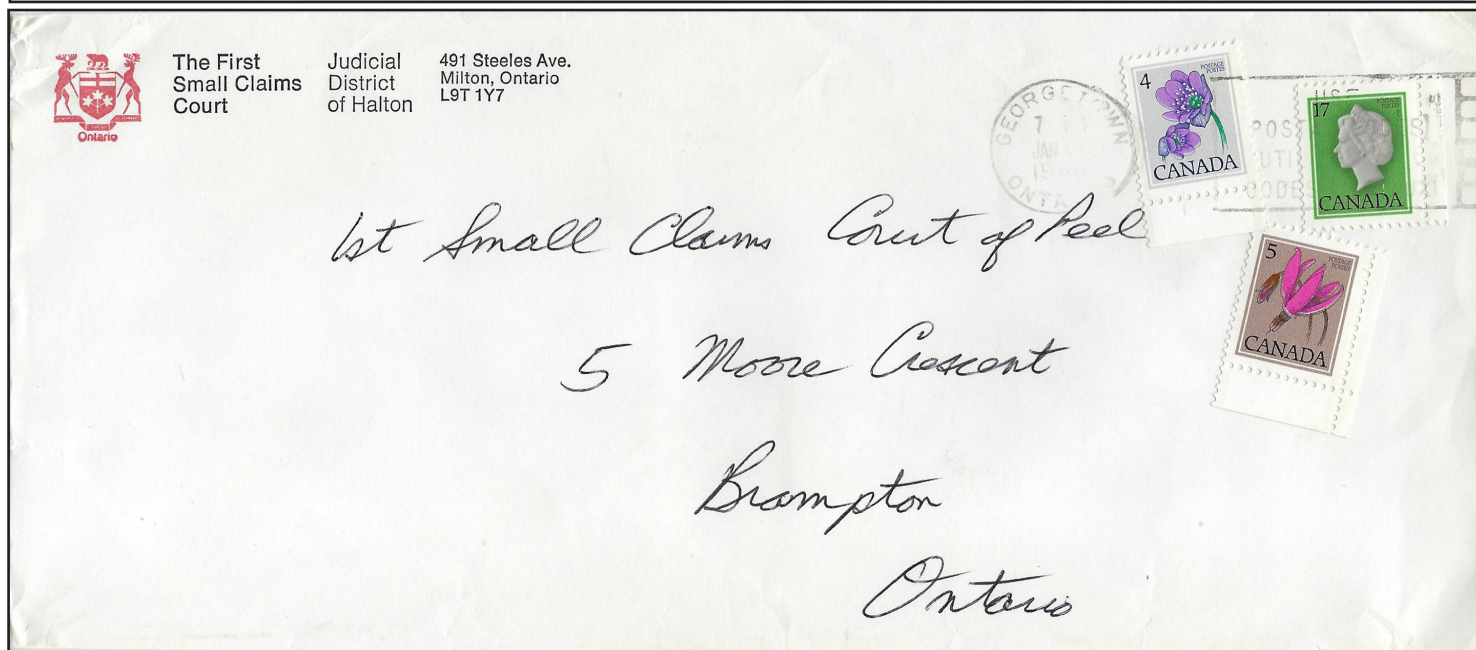 The First
Small Claims
Court
Judicial
District
of Halton
491 Steeles Ave.
Milton, Ontario
L9T 1Y7
Ontario
GEORGETOWN
JAN
ONTARIO
4
POSTAGE
POSTES
CANADA
17
POSTAGE
POSTES
CANADA
5
POSTAGE
POSTES
CANADA
1st Small Claims Court of Peel
5 Moore Crescent
Brampton
Ontario